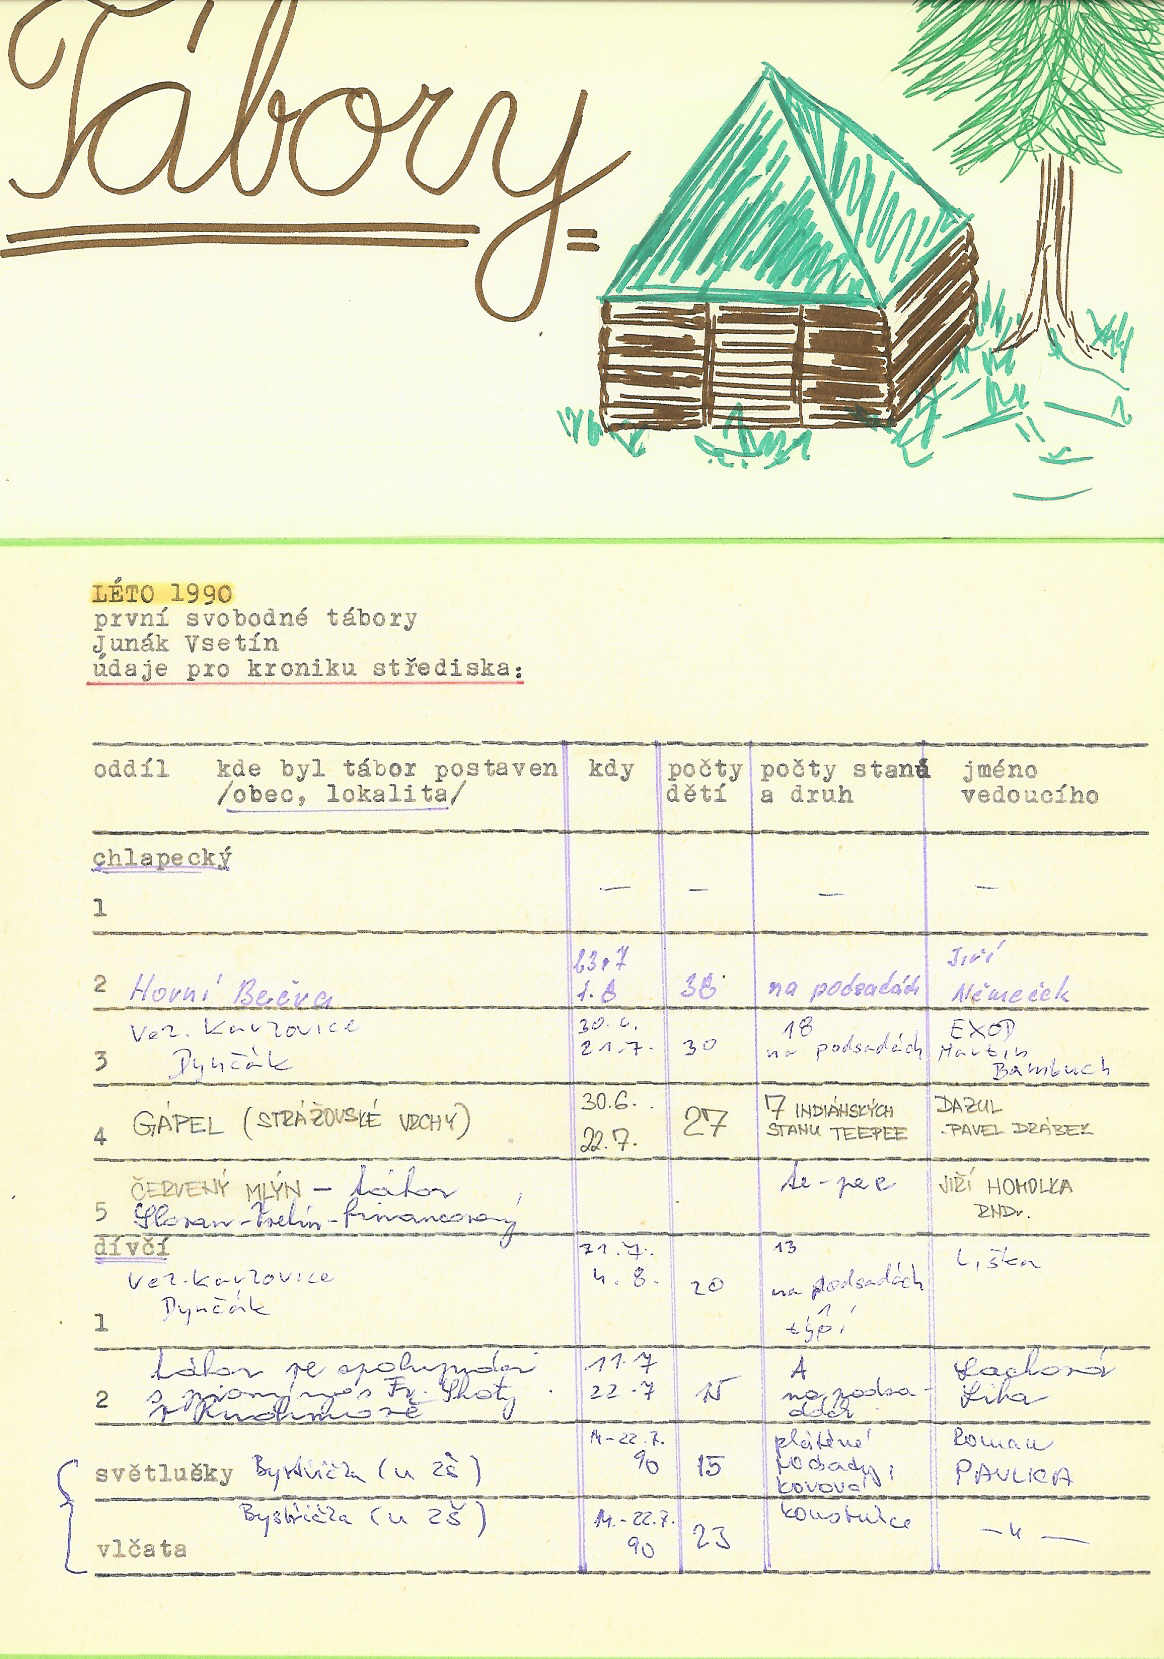 Tábory
LÉTO 1990
první svobodné tábory
Junák Vsetín
údaje pro kroniku střediska:
oddíl kde byl tábor postaven kdy počty počty stanů jméno
/obec, lokalita/ dětí a druh vedoucího
chlapecký
1 — — — —
23.7 Jiří
2 Horní Bečva 1.8 38 na podsadách Němeček
Vel. Karlovice 30.6. 18 EXOD
3 Dynčák 21.7. 30 na podsadách Martin
Bambuch
GÁPEL (STRÁŽOVSKÉ VRCHY) 30.6. 27 7 INDIÁNSKÝCH DAZUL
4 22.7. STANU TEEPEE PAVEL DRÁBEK
ČERVENÝ MLÝN – tábor te-pee JIŘÍ HOMOLKA
5 Slovan-Vsetín-financovaný RNDr.
dívčí 21.7. 13
Vel. Karlovice 4.8. 20 na podsadách Liška
Dynčák týpí
1
tábor ve spolupráci 11.7 A Lachová
2 s pionýry Fr. Lhoty 22.7 15 na podsa-
dách
14-22.7. plátěné Roman
světlušky Bystřička (u ZŠ) 90 15 podsady, PAVLICA
kovová
Bystřička (u ZŠ) 14.-22.7. konstrukce
vlčata 90 23 —"—